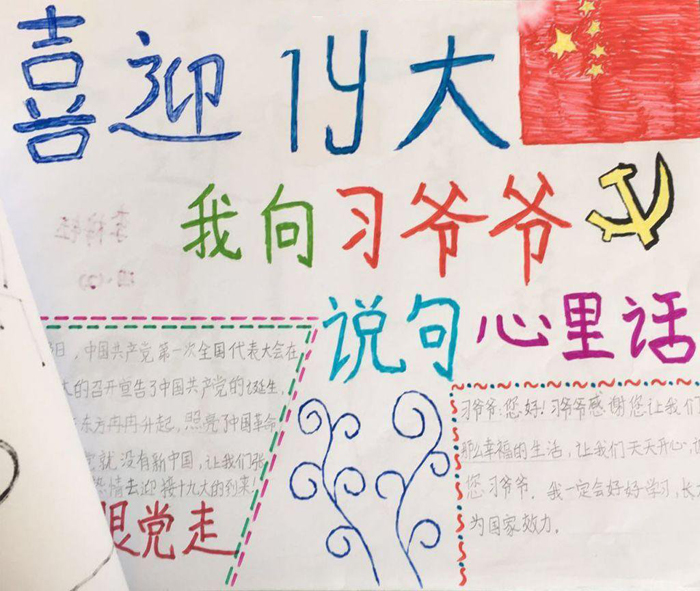 喜迎19大
我向习爷爷
说句心里话
日,中国共产党第一次全国代表大会在
的召开宣告了中国共产党的诞生,
东方冉冉升起,照亮了中国革命
就没有新中国,让我们张
热情去迎接十九大的到来!
跟党走
习爷爷:您好!习爷爷感谢您让我们
那么幸福的生活,让我们天天开心,
您习爷爷。我一定会好好学习,长
为国家效力。